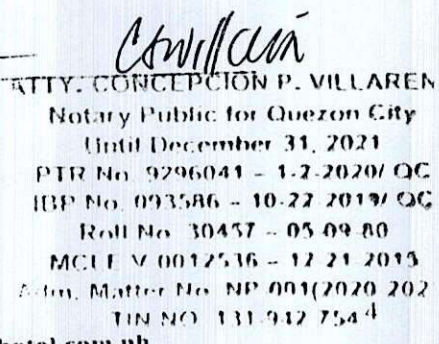 ATTY. CONCEPCION P. VILLAREN
Notary Public for Quezon City
Until December 31, 2021
PTR No. 9296041 - 1-2-2020/ QC
IBP No. 093586 - 10-22-2019/ QC
Roll No. 30457 - 05-09-80
MCLE V 0012536 - 12-21-2015
Adm. Matter No. NP 001(2020 202
TIN NO. 131-942-7544
hotel.com.ph